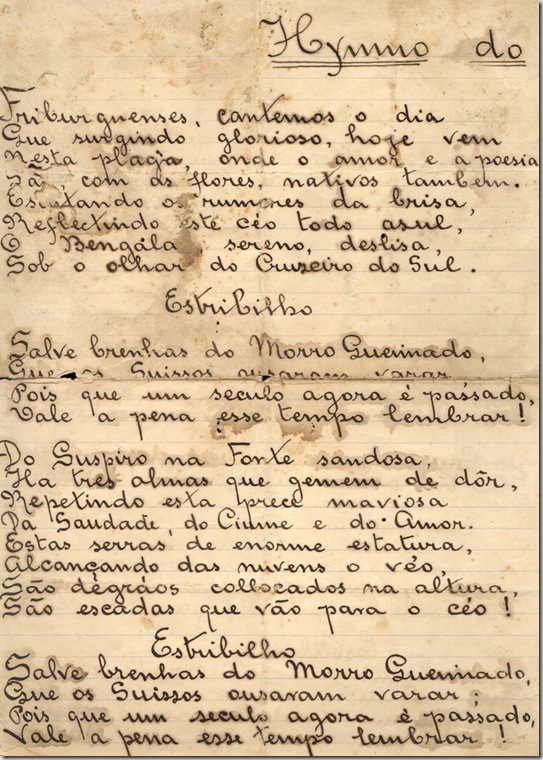 Hymno do
Friburguenses, cantemos o dia
Que surgindo glorioso, hoje vem
Nesta plaga, onde o amor e a poesia
São, com as flores, nativos tambem.
Escutando os rumores da brisa,
Reflectindo este céo todo asul,
O Bengála sereno, deslisa,
Sob o olhar do Cruzeiro do Sul.
Estribilho
Salve brenhas do Morro Gueimado,
Que os Suissos ousaram varar
Pois que um seculo agora é passado,
Vale a pena esse tempo lembrar!
Do Suspiro na Fonte saudosa,
Ha tres almas que gemem de dôr,
Repetindo esta prece maviosa
Da Saudade, do Ciume e do Amor.
Estas serras de enorme estatura,
Alcançando das nuvens o véo,
São dégráos collocados na altura,
São escadas que vão para o céo!
Estribilho
Salve brenhas do Morro Gueimado,
Que os Suissos ousaram varar;
Pois que um seculo agora é passado,
Vale a pena esse tempo lembrar!